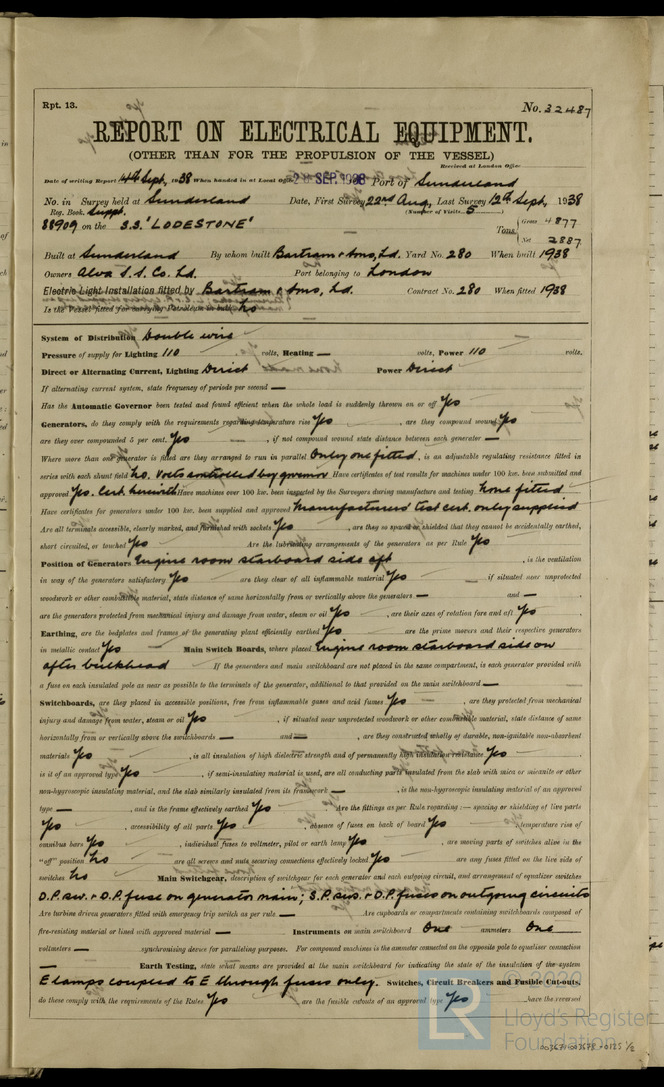 Rpt. 13.
No. 32487
REPORT ON ELECTRICAL EQUIPMENT.
(OTHER THAN FOR THE PROPULSION OF THE VESSEL)
Received at London Office
Date of writing Report 14th Sept, 1938 When handed in at Local Office 2 SEP. 1938 Port of Sunderland
No. in Survey held at Sunderland Date, First Survey 22nd Aug, Last Survey 12th Sept, 1938
Reg. Book. Suppt. (Number of Visits 5)
38909 on the S.S. 'LODESTONE' Tons { Gross 4877
Net 2887
Built at Sunderland By whom built Bartram & Sons, Ld. Yard No. 280 When built 1938
Owners Alva S.S. Co. Ld. Port belonging to London
Electric Light Installation fitted by Bartram & Sons, Ld. Contract No. 280 When fitted 1938
Is the Vessel fitted for carrying Petroleum in bulk No
System of Distribution Double wire
Pressure of supply for Lighting 110 volts, Heating — volts, Power 110 volts.
Direct or Alternating Current, Lighting Direct Power Direct
If alternating current system, state frequency of periods per second —
Has the Automatic Governor been tested and found efficient when the whole load is suddenly thrown on or off Yes
Generators, do they comply with the requirements regarding temperature rise Yes, are they compound wound Yes
are they over compounded 5 per cent. Yes, if not compound wound state distance between each generator —
Where more than one generator is fitted are they arranged to run in parallel Only one fitted, is an adjustable regulating resistance fitted in
series with each shunt field No. Volts controlled by governor Have certificates of test results for machines under 100 kw. been submitted and
approved Yes. Cert. herewith Have machines over 100 kw. been inspected by the Surveyors during manufacture and testing None fitted
Have certificates for generators under 100 kw. been supplied and approved Manufacturers' test cert. only supplied
Are all terminals accessible, clearly marked, and furnished with sockets Yes, are they so spaced or shielded that they cannot be accidentally earthed,
short circuited, or touched Yes Are the lubricating arrangements of the generators as per Rule Yes
Position of Generators Engine room starboard side aft, is the ventilation
in way of the generators satisfactory Yes are they clear of all inflammable material Yes, if situated near unprotected
woodwork or other combustible material, state distance of same horizontally from or vertically above the generators — and —
are the generators protected from mechanical injury and damage from water, steam or oil Yes, are their axes of rotation fore and aft Yes
Earthing, are the bedplates and frames of the generating plant efficiently earthed Yes are the prime movers and their respective generators
in metallic contact Yes Main Switch Boards, where placed Engine room starboard side on
after bulkhead If the generators and main switchboard are not placed in the same compartment, is each generator provided with
a fuse on each insulated pole as near as possible to the terminals of the generator, additional to that provided on the main switchboard —
Switchboards, are they placed in accessible positions, free from inflammable gases and acid fumes Yes, are they protected from mechanical
injury and damage from water, steam or oil Yes, if situated near unprotected woodwork or other combustible material, state distance of same
horizontally from or vertically above the switchboards — and —, are they constructed wholly of durable, non-ignitable non-absorbent
materials Yes, is all insulation of high dielectric strength and of permanently high insulation resistance Yes
is it of an approved type Yes, if semi-insulating material is used, are all conducting parts insulated from the slab with mica or micanite or other
non-hygroscopic insulating material, and the slab similarly insulated from its framework —, is the non-hygroscopic insulating material of an approved
type —, and is the frame effectively earthed Yes Are the fittings as per Rule regarding :— spacing or shielding of live parts
Yes, accessibility of all parts Yes, absence of fuses on back of board Yes, temperature rise of
omnibus bars Yes, individual fuses to voltmeter, pilot or earth lamp Yes, are moving parts of switches alive in the
"off" position No are all screws and nuts securing connections effectively locked Yes are any fuses fitted on the live side of
switches No Main Switchgear, description of switchgear for each generator and each outgoing circuit, and arrangement of equalizer switches
D.P. sw. & D.P. fuse on generator main; S.P. sws. & D.P. fuses on outgoing circuits
Are turbine driven generators fitted with emergency trip switch as per rule — Are cupboards or compartments containing switchboards composed of
fire-resisting material or lined with approved material — Instruments on main switchboard One ammeters One
voltmeters — synchronising device for paralleling purposes. For compound machines is the ammeter connected on the opposite pole to equaliser connection
— Earth Testing, state what means are provided at the main switchboard for indicating the state of the insulation of the system
E lamps coupled to E through fuses only. Switches, Circuit Breakers and Fusible Cut-outs,
do these comply with the requirements of the Rules Yes are the fusible cutouts of an approved type Yes have the reversed
© 2020
LR
Lloyd's Register
Foundation